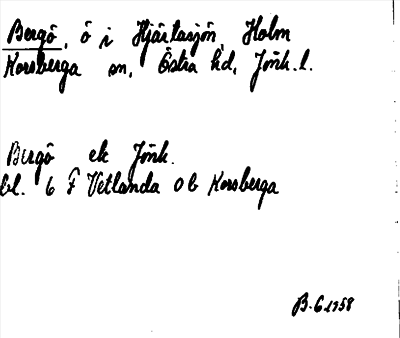 Bergö, ö i Hjärtasjön, Holm
Korsberga sn, Östra hd, Jönk. l.
Bergö ek Jönk.
bl. 6 F Vetlanda Ob Korsberga
B. G 1958